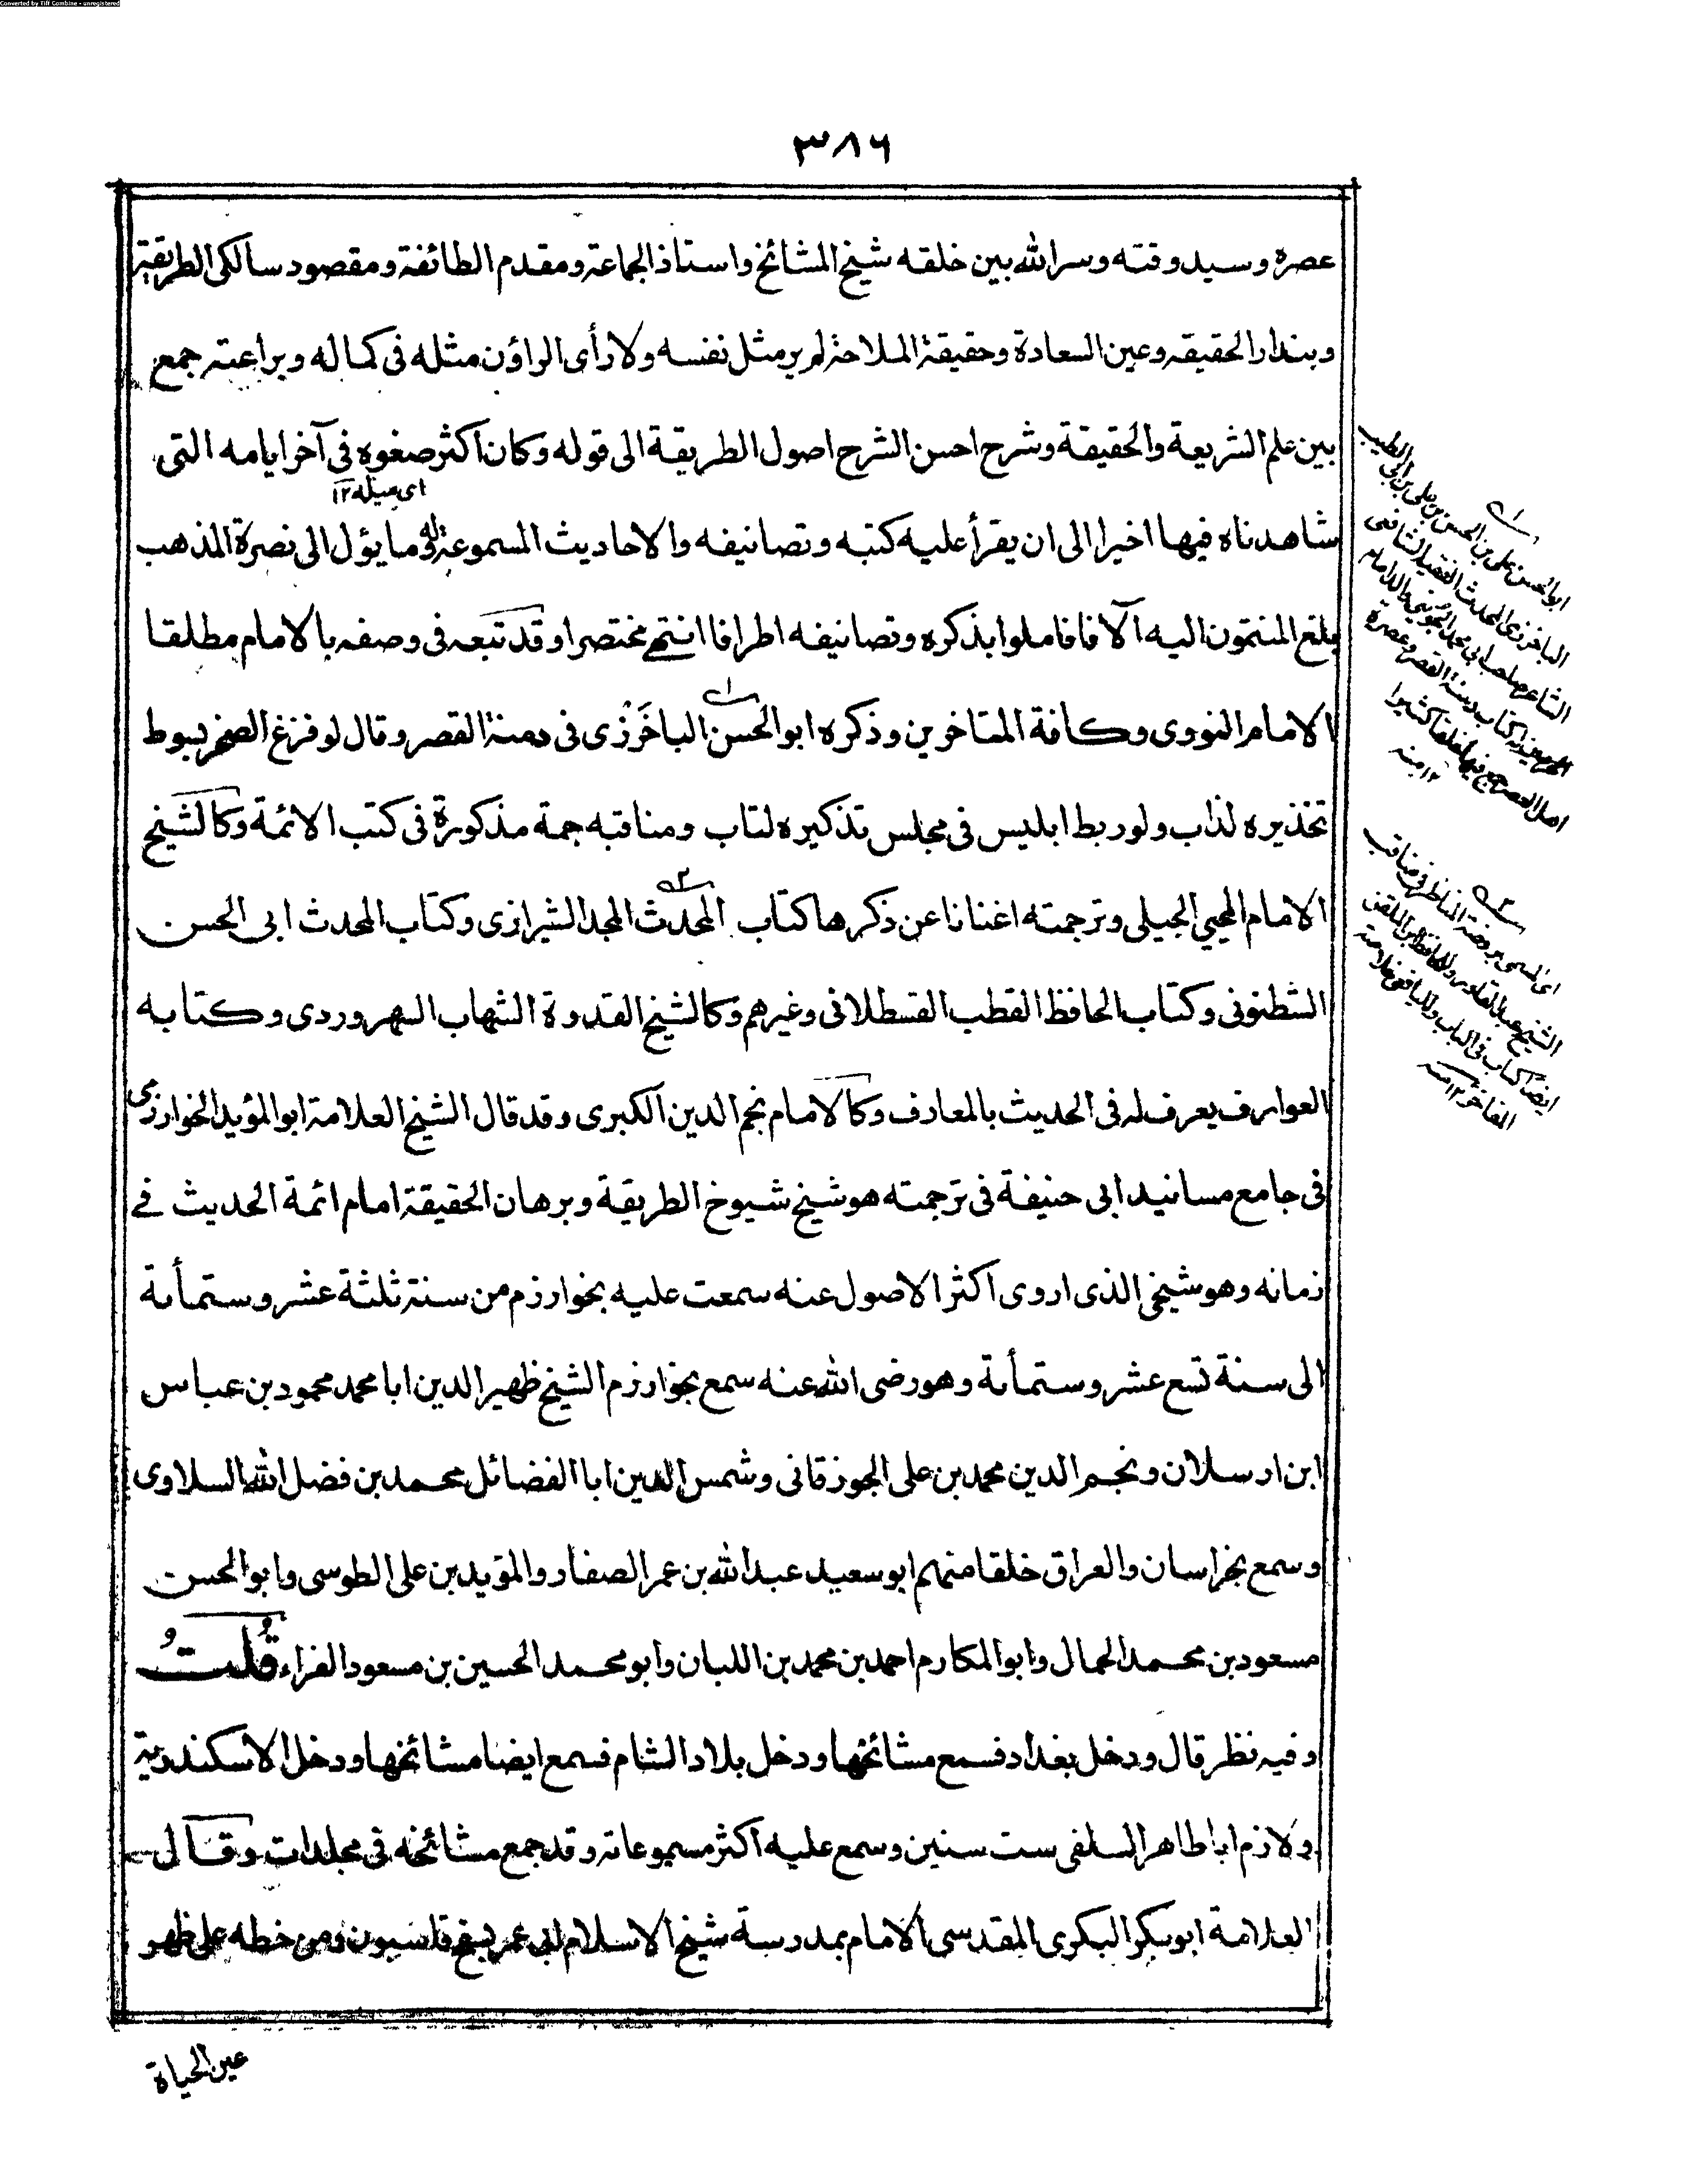 Converted by Tiff Combine - unregistered
٣٨٦
عصره وسيد وقته وسر الله بين خلقه شيخ المشائخ واستاذ الجماعة ومقدم الطائفة ومقصود سالكى الطريقة
وبندار الحقيقة وعين السعادة وحقيقة الملاحة لم ير مثل نفسه ولا رأى الراؤن مثله فى كماله وبراعته جمع
بين علم الشريعة والحقيقة وشرح احسن الشرح اصول الطريقة الى قوله وكان اكثر صغوه فى آخر ايامه التى
اى ميله ١٢
شاهدناه فيها اخيرا الى ان يقرأ عليه كتبه وتصانيفه والاحاديث المسموعة له وما يؤل الى نصرة المذهب
بلغ المنتمون اليه الآفاق فاملوا بذكره وتصانيفه اطرافا انتهى مختصرا وقد تبعه فى وصفه بالامام مطلقا
الامام النووى وكافة المتاخرين وذكره ابو الحسن الباخَرْزى فى دمنة القصر وقال لو قرع الصخر بسوط
١
تحذيره لذاب ولو ربط ابليس فى مجلس تذكيره لتاب ومناقبه جمة مذكورة فى كتب الائمة وكالشيخ
الامام المحيى الجيلى وترجمته اغنانا عن ذكرها كتاب المحدث المجد الشيرازى وكتاب المحدث ابى الحسن
٢
الشطنوفى وكتاب الحافظ القطب القسطلانى وغيرهم وكالشيخ القدوة الشهاب السهروردى وكتابه
العوارف يعرف له فى الحديث بالمعارف وكالامام نجم الدين الكبرى وقد قال الشيخ العلامة ابو المؤيد الخوارزمى
فى جامع مسانيد ابى حنيفة فى ترجمته هو شيخ شيوخ الطريقة وبرهان الحقيقة امام ائمة الحديث فے
زمانه وهو شيخى الذى اروى اكثر الاصول عنه سمعت عليه بخوارزم من سنة ثلثة عشر وستمأة
الى سنة تسع عشر وستمأة وهو رضى الله عنه سمع بخوارزم الشيخ ظهير الدين ابا محمد محمود بن عباس
ابن ارسلان ونجم الدين محمد بن على الجوزقانى وشمس الدين ابا الفضائل محمد بن فضل الله السلاوى
وسمع بخراسان والعراق خلقا منهم ابو سعيد عبد الله بن عمر الصفار والمؤيد بن على الطوسى وابو الحسن
مسعود بن محمد الجمال وابو المكارم احمد بن محمد بن اللبان وابو محمد الحسين بن مسعود الفراء قُلتُ
وفيه نظر قال ودخل بغداد فسمع مشائخها ودخل بلاد الشام فسمع ايضا مشائخها ودخل الاسكندرية
ولازم ابا طاهر السلفى ست سنين وسمع عليه اكثر مسموعاته وقد جمع مشائخه فى مجلدات وقال
العلامة ابو بكر البكرى المقدسى الامام بمدرسة شيخ الاسلام ابى عمر بسفح قاسيون ومن خطه على ظهر
عين الحياة
١
ابو الحسن على بن الحسن بن على بن ابى الطيب
الباخرزى المحدث الفقيه الشافعى
الشاعر صاحب ابى محمد الجوينى والد امام
الحرمين له كتاب دمنة القصر وعصرة
اهل العصر جمع فيها خلقا كثيرا
١٢ منه
٢
اى المسمى بروضة الناظر فى مناقب
الشيخ عبد القادر وللحافظ ابن الملقن
ايضا كتاب فى الباب ولليافعى خلاصة
المفاخر ١٢ منه